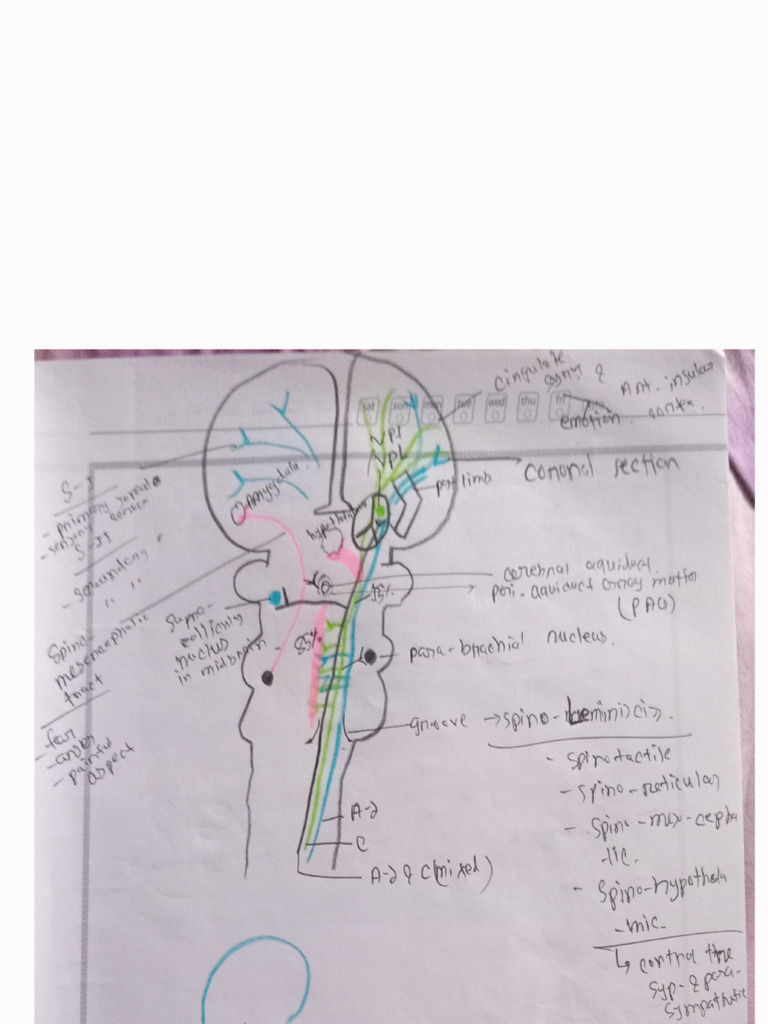 cingulate
gyrus &
Ant. insular
cortex.
emotion.
sat
sun
mon
tue
wed
thu
fri
VPL
VPL
coronal section
post limb
Amygdala.
hypothalamus
S-I
- primary somato
- sensory cortex
S-II
- secondary "
" "
Spino-
mesencephalic
tract
- fear
- anger
- painful
aspect
Supra-
colliculus
nucleus
in midbrain -
85%
15%
cerebral aquiduct.
peri-aquiduct Gray matter
(PAG)
para-brachial nucleus.
groove → spino-leminiscis.
- spinotactile
- spino-reticular
- Spino-mex-cepha
-lic.
- Spino-hypothala
-mic.
↳ control the
syp- & para-
sympathetic
C
A-δ & C (mixed)